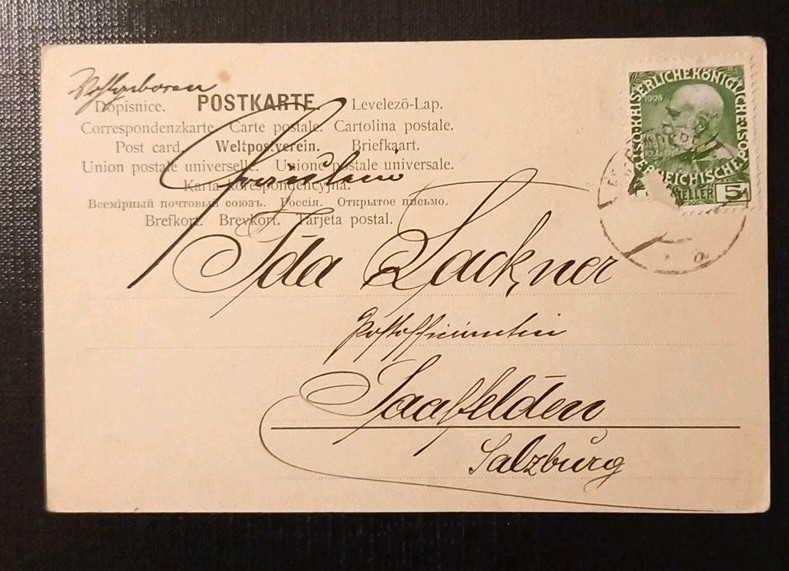 Wohlgeboren
Dopisnice. POSTKARTE. Levelező-Lap.
Correspondenzkarte. Carte postale. Cartolina postale.
Post card. Weltpostverein. Briefkaart.
Union postale universelle. Unione postale universale.
Karta korespondencyjna.
Всемірный почтовый союзъ. Россія. Открытое письмо.
Brefkort. Brevkort. Tarjeta postal.
Fräulein
Ida Lackner
Postoffiziantin
Saalfelden
Salzburg
KAISERLICHE KÖNIGLICHE ÖSTERREICHISCHE
1908
HELLER 5